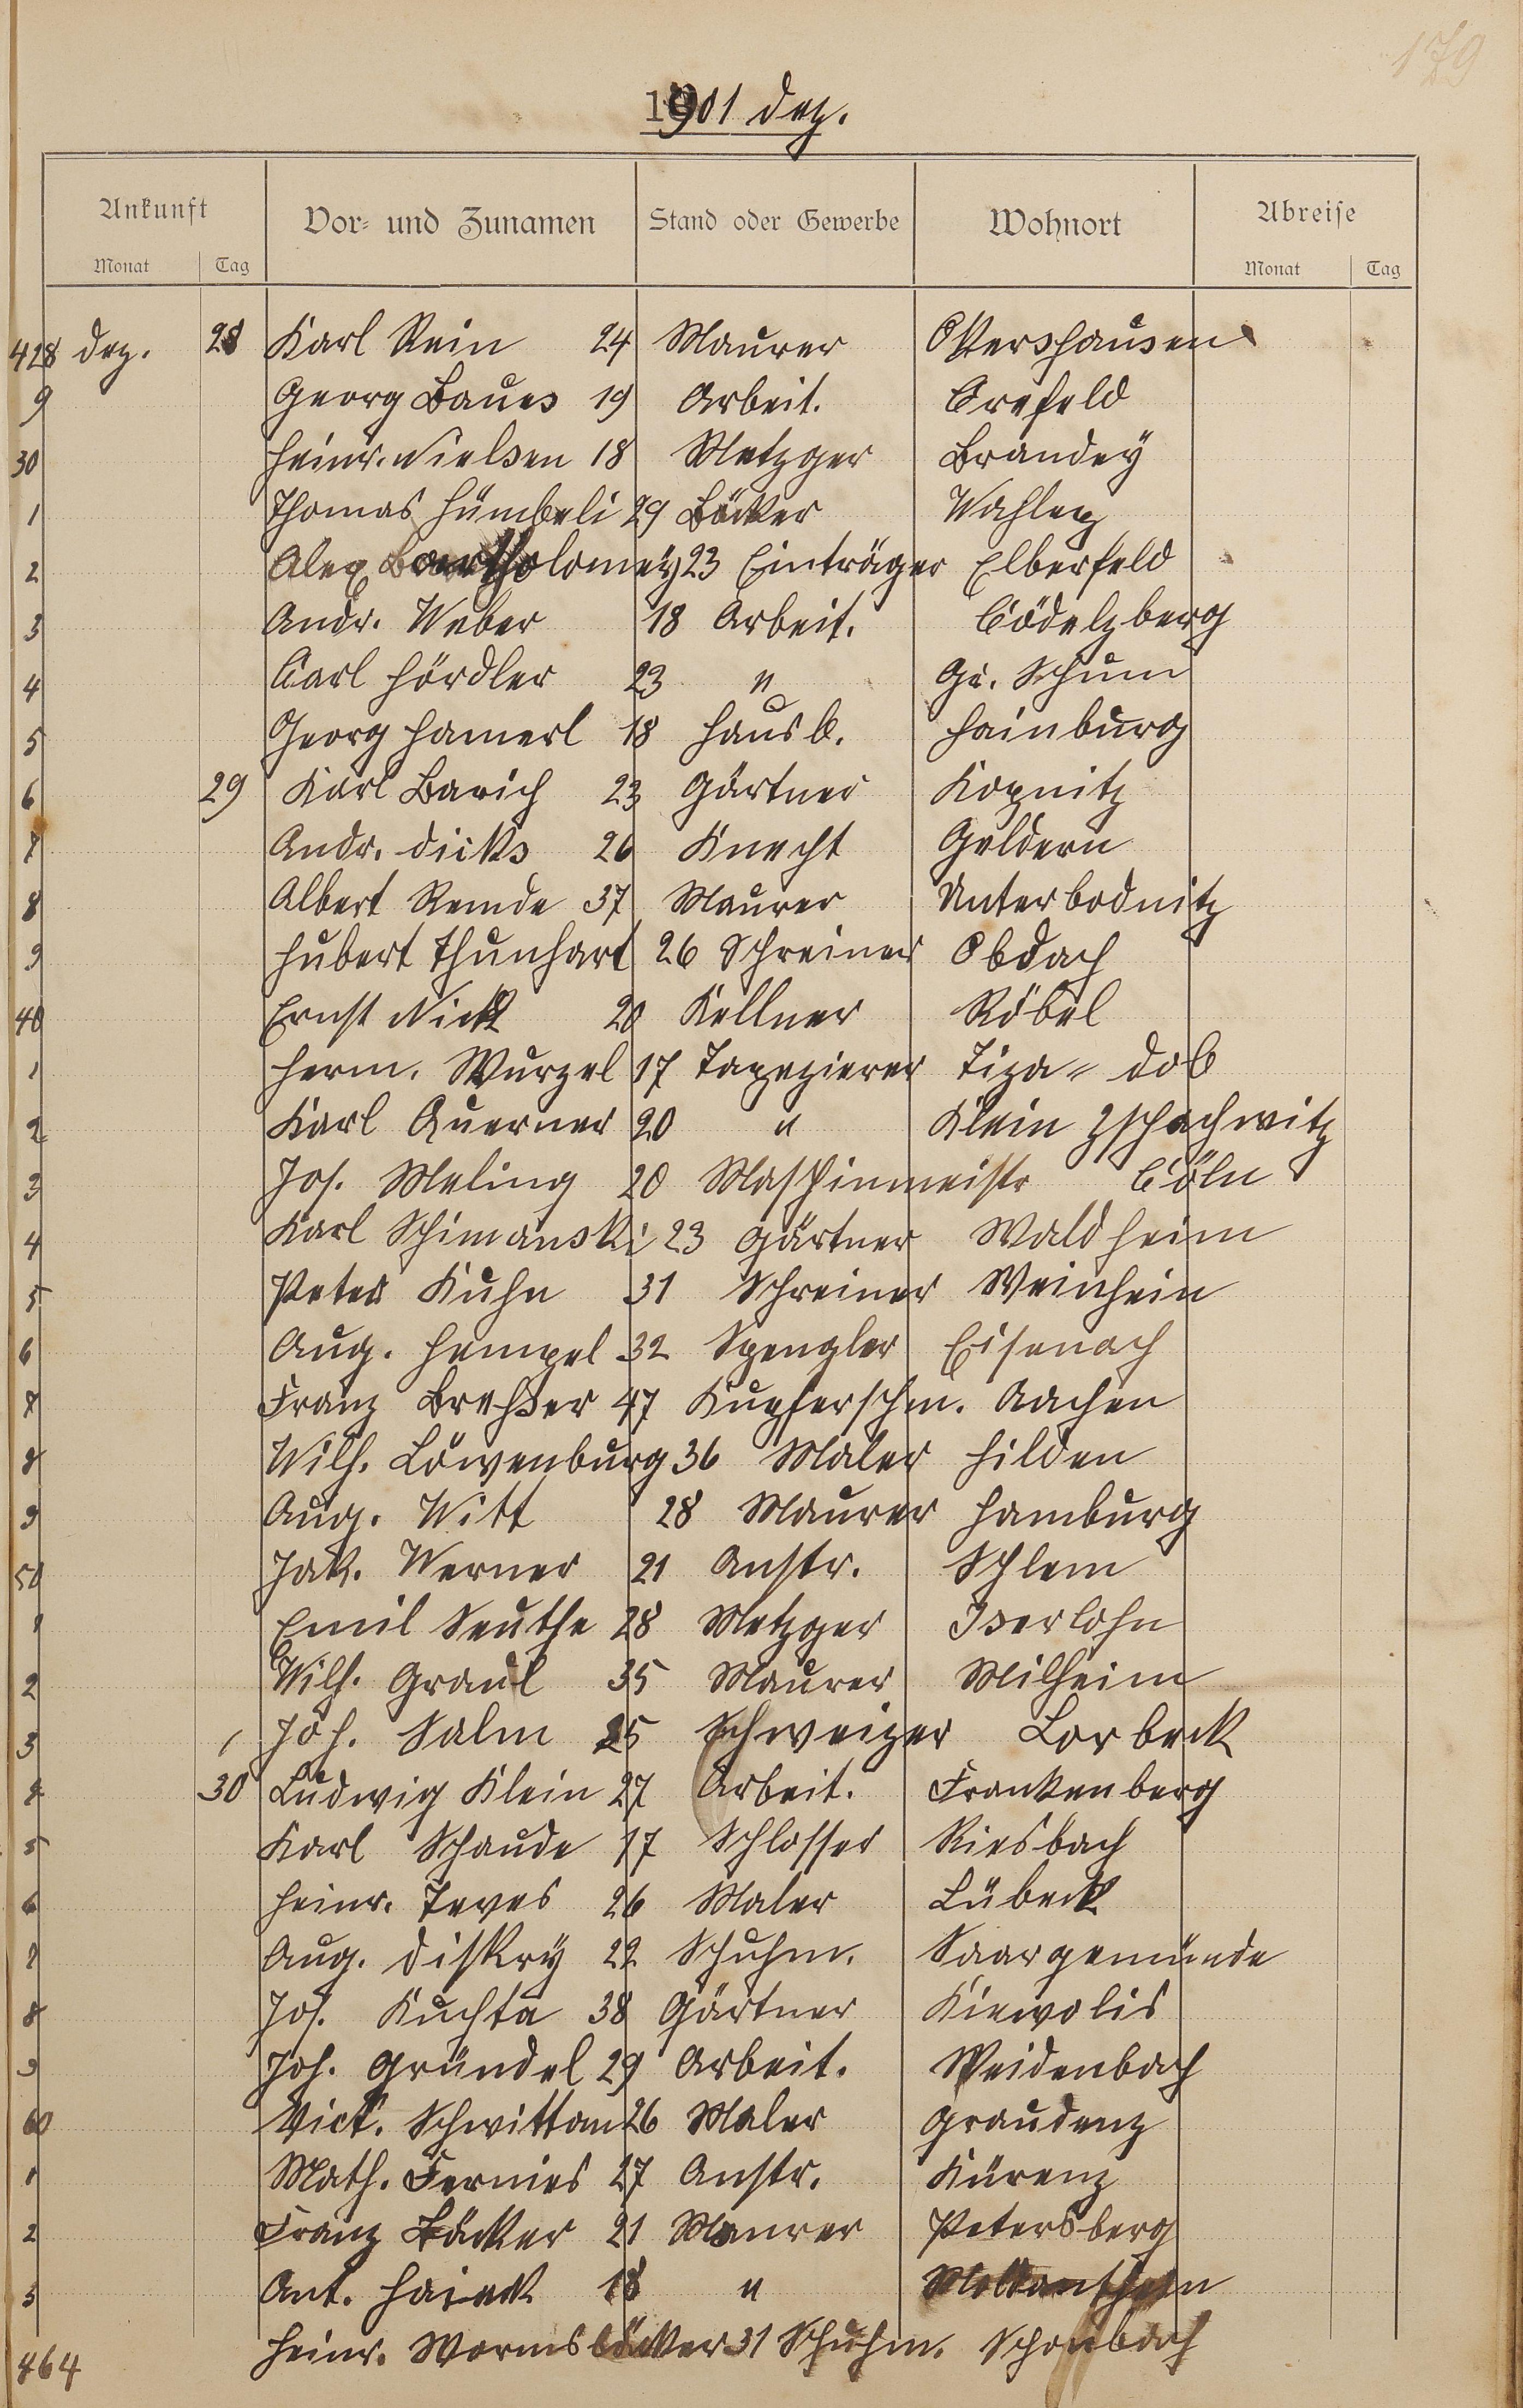 179
1901 Dez.
Ankunft Vor- und Zunamen Stand oder Gewerbe Wohnort Abreise
Monat Tag Monat Tag
428 Dez. 28 Karl Rein 24 Maurer Ostershausen
9 Georg Baues 19 Arbeit. Crefeld
30 Heinr. Nielsen 18 Metzger Brandey
1 Thomas Hümbeli 29 Bäcker Wahlen
2 Alex Bartholomey 23 Einträger Elberfeld
3 Andr. Weber 18 Arbeit. Cödelzberg
4 Carl Hördler 23 " Gr. Schum
5 Georg Hamerl 18 Hausb. Hainburg
6 29 Karl Barich 23 Gärtner Kopnitz
7 Andr. Dicks 26 Knecht Geldern
8 Albert Remde 37 Maurer Unterbodnitz
9 Hubert Thunhart 26 Schreiner Obdach
40 Ernst Nick 20 Kellner Röbel
1 Herm. Wurzel 17 Tapezierer Tiza- Dob
2 Karl Querner 20 " Klein Zschachwitz
3 Jos. Meling 20 Maschinmeistr Cöln
4 Karl Schimanski 23 Gärtner Waldheim
5 Peter Kuhn 31 Schreiner Weinheim
6 Aug. Hempel 32 Spengler Eisenach
7 Franz Breßer 47 Kupferschm. Aachen
8 Wilh. Löwenburg 36 Maler Hilden
9 Aug. Witt 28 Maurer Hamburg
50 Jak. Werner 21 Anstr. Schlem
1 Emil Seuthe 28 Metzger Iserlohn
2 Wilh. Graul 35 Maurer Milheim
3 Joh. Salm 25 Schweizer Lorbeck
4 30 Ludwig Klein 27 Arbeit. Frankenberg
5 Karl Schaude 17 Schlosser Riesbach
6 Heinr. Teves 26 Maler Lübeck
7 Aug. Diskry 22 Schuhm. Saargemünde
8 Jos. Kuchta 38 Gärtner Kiewolis
9 Joh. Gründel 29 Arbeit. Weidenbach
60 Vict. Schwittan 26 Maler Graudenz
1 Math. Fermes 27 Anstr. Kürenz
2 Franz Bäcker 21 Maurer Petersberg
3 Ant. Haiek 18 "
464 Heinr. Wormsbäcker 31 Schuhm. Schönbach